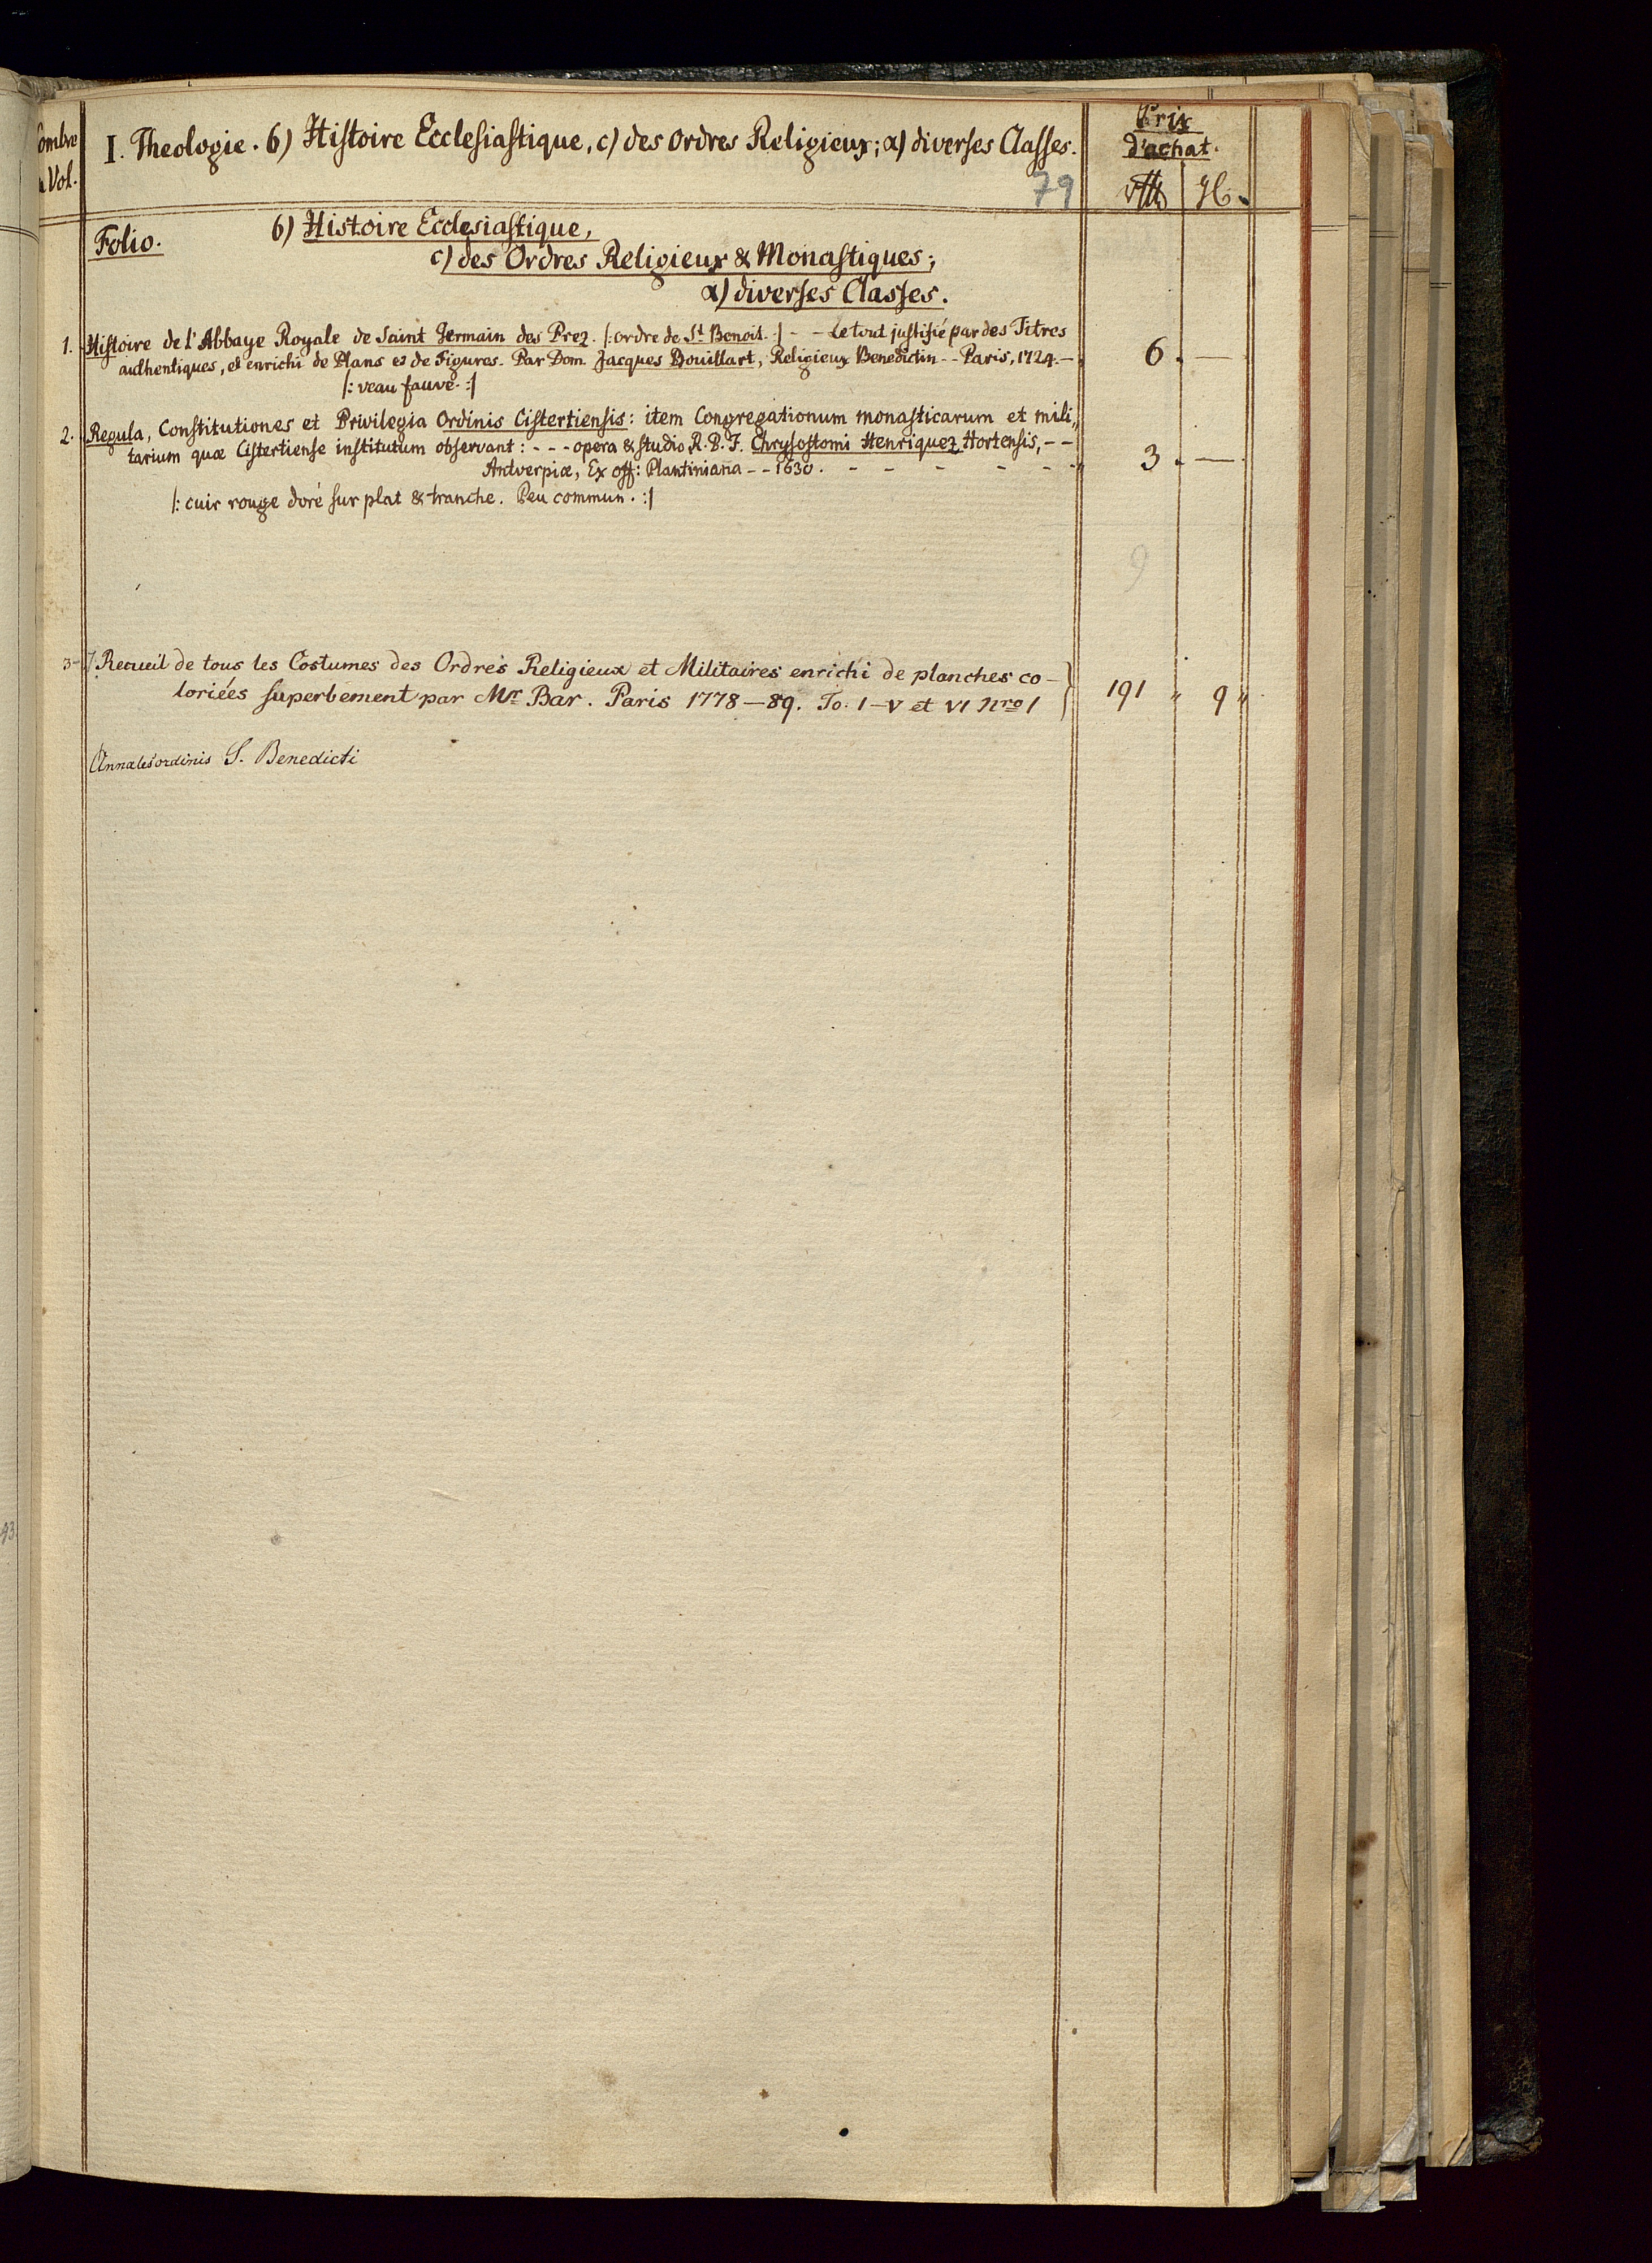 ombre
Vol.
I. Theologie. 6) Histoire Ecclesiastique, c) des Ordres Religieux; α) diverses Classes.
79
Prix
d'achat.
Folio.
6) Histoire Ecclesiastique,
c) des Ordres Religieux & Monastiques;
α) diverses Classes.
1. Histoire de l'Abbaye Royale de Saint Germain des Prez. |: ordre de St Benoit. :| - - Le tout justifié par des Titres
authentiques, et enrichi de Plans et de Figures. Par Dom. Jacques Bouillart, Religieux Benedictin - - Paris, 1724. - 6. —
|: veau fauve. :|
2. Regula, Constitutiones et Privilegia Ordinis Cistertiensis: item Congregationum monasticarum et mili„
tarium quæ Cistertiense institutum observant: - - - opera & studio R. P. F. Chrysostomi Henriquez Hortensis, - -
Antverpiæ, Ex off: Plantiniana - - 1630. - - - - - - 3. —
|: cuir rouge doré sur plat & tranche. Peu commun. :|
9
3 - Recueil de tous les Costumes des Ordres Religieux et Militaires enrichi de planches co-
loriées superbement par Mr Bar. Paris 1778–89. To. I–V et VI Nro 1 191 „ 9 „
Annales ordinis S. Benedicti
93